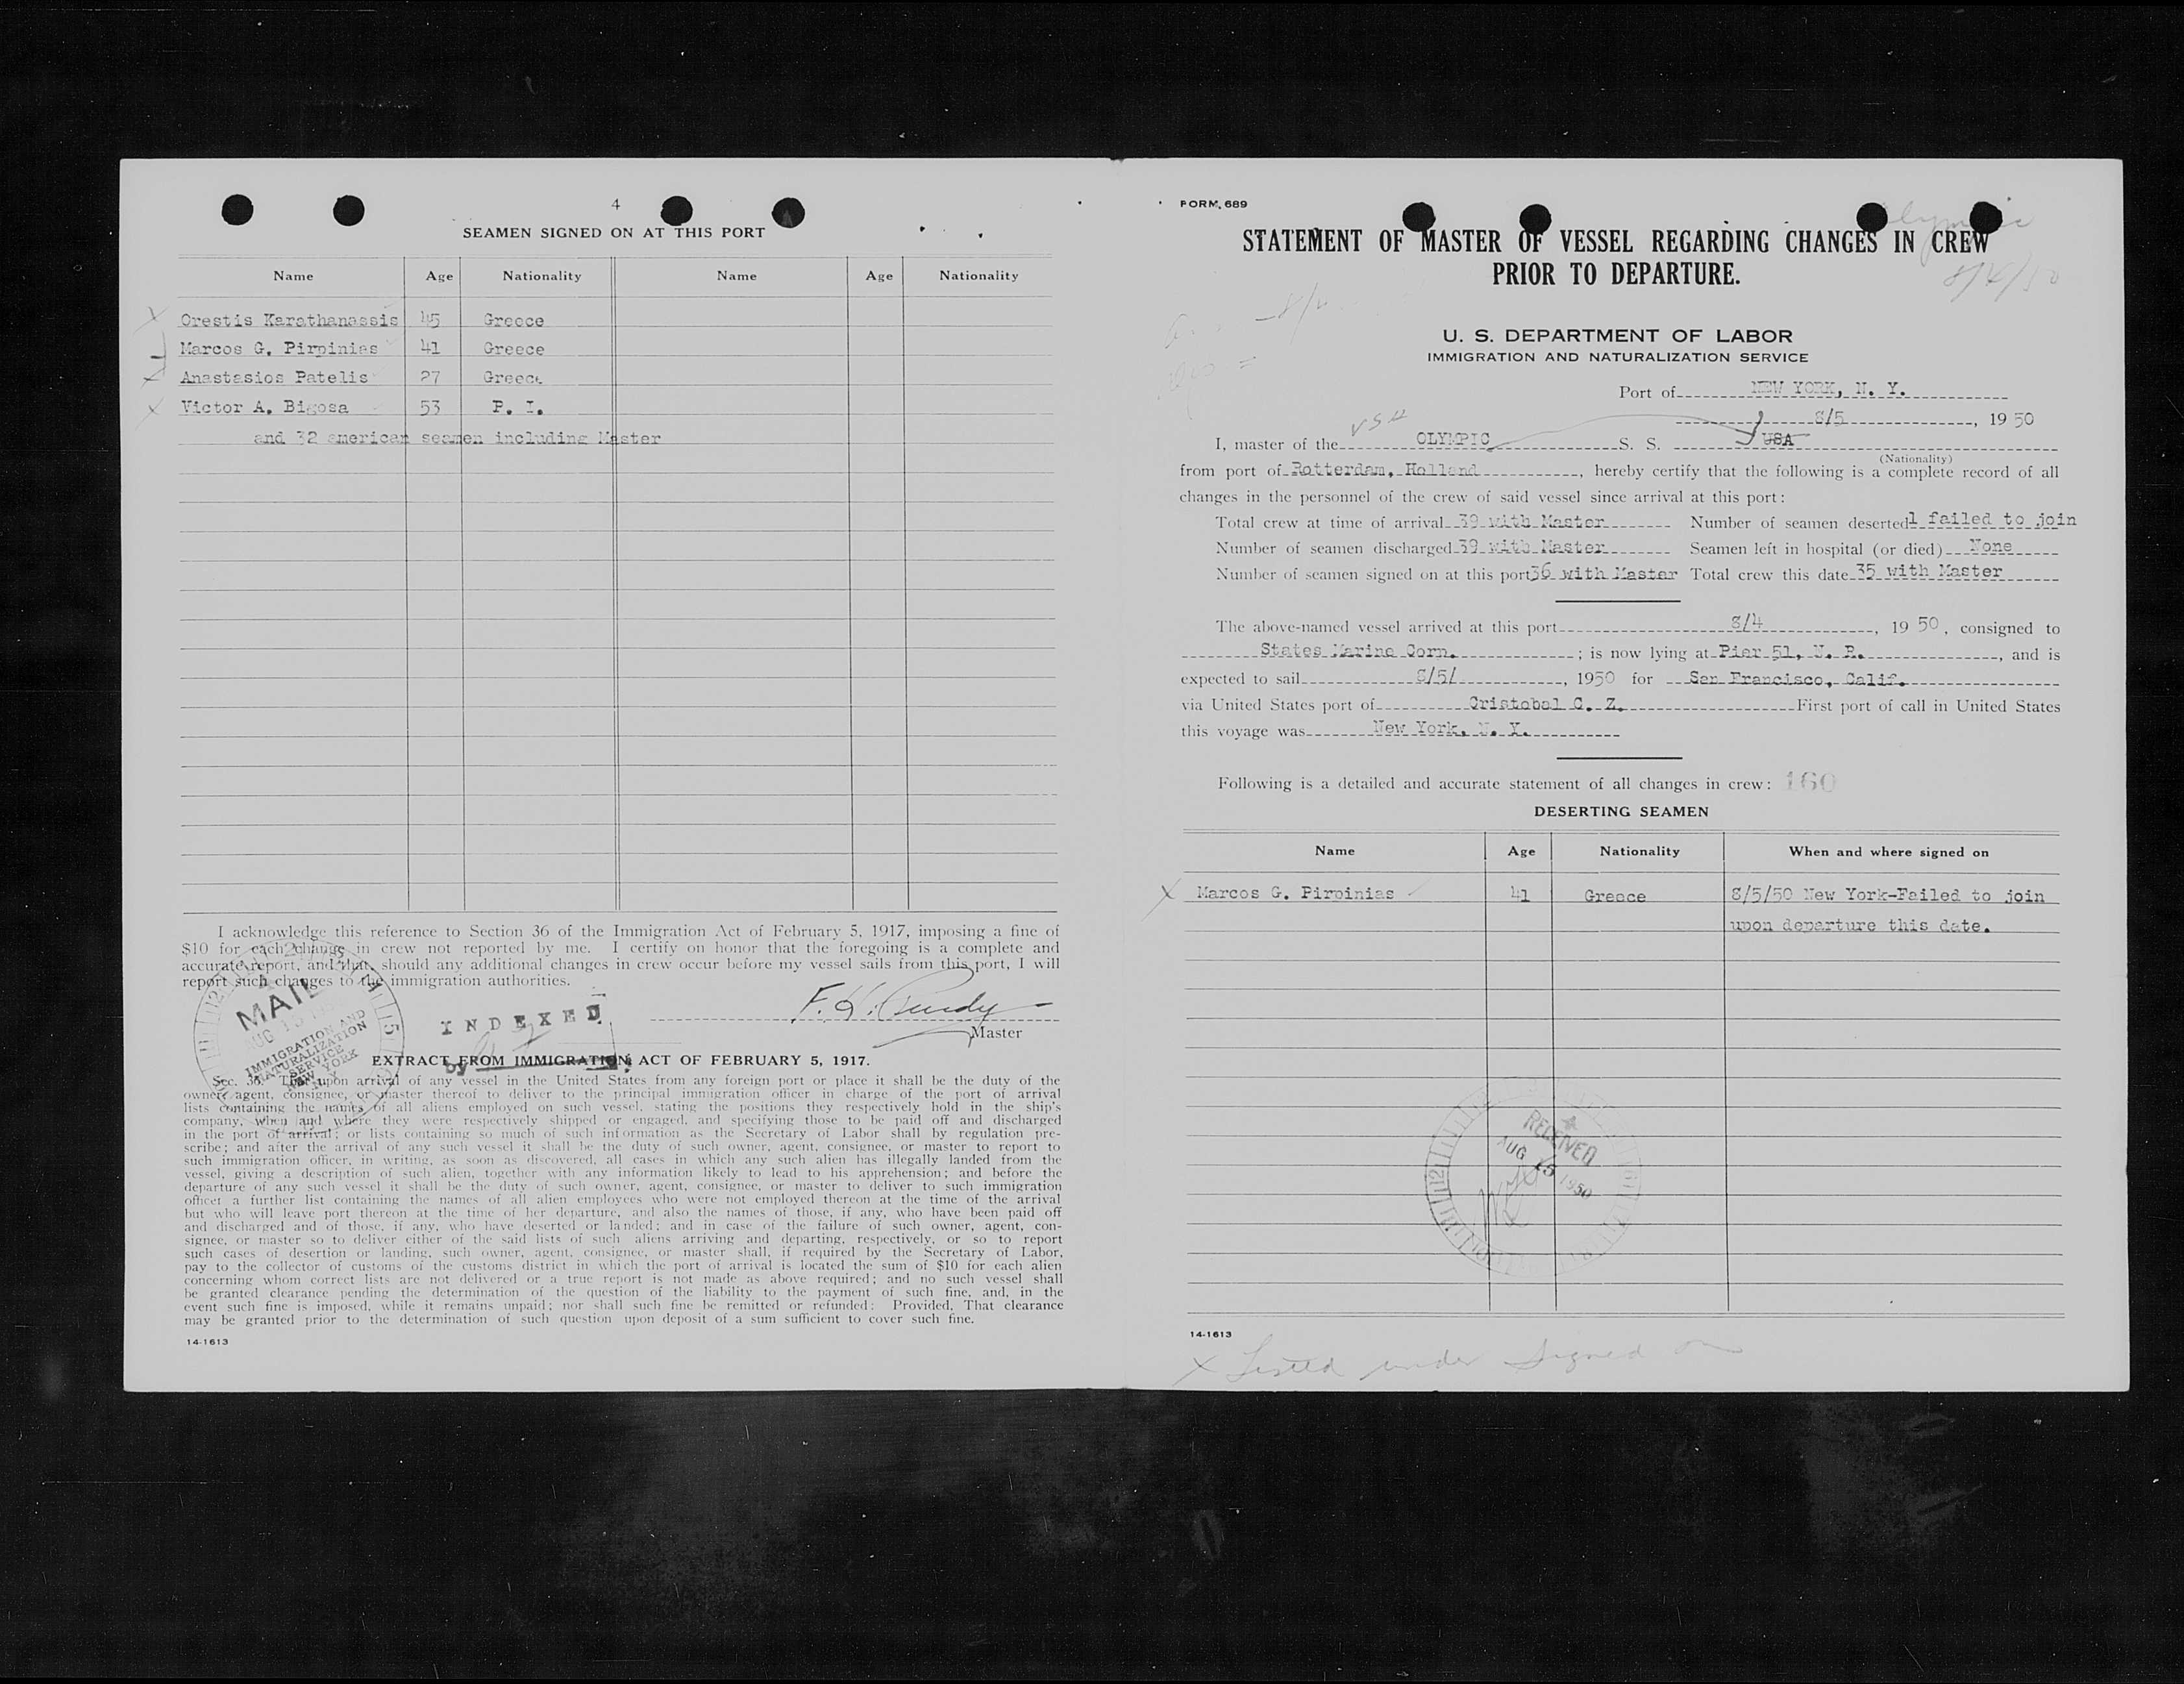 4
SEAMEN SIGNED ON AT THIS PORT
Name Age Nationality Name Age Nationality
Orestis Karathanassis 45 Greece
Marcos G. Pirpinias 41 Greece
Anastasios Patelis 27 Greece
Victor A. Bigosa 53 P. I.
and 32 american seamen including Master
I acknowledge this reference to Section 36 of the Immigration Act of February 5, 1917, imposing a fine of
$10 for each change in crew not reported by me. I certify on honor that the foregoing is a complete and
accurate report, and that, should any additional changes in crew occur before my vessel sails from this port, I will
report such changes to the immigration authorities.
MAIL
AUG 15
IMMIGRATION AND
NATURALIZATION
SERVICE
NEW YORK
N. Y.
INDEXED
by
F. H. Purdy
Master
EXTRACT FROM IMMIGRATION ACT OF FEBRUARY 5, 1917.
Sec. 36. That upon arrival of any vessel in the United States from any foreign port or place it shall be the duty of the
owner, agent, consignee, or master thereof to deliver to the principal immigration officer in charge of the port of arrival
lists containing the names of all aliens employed on such vessel, stating the positions they respectively hold in the ship's
company, when and where they were respectively shipped or engaged, and specifying those to be paid off and discharged
in the port of arrival; or lists containing so much of such information as the Secretary of Labor shall by regulation pre-
scribe; and after the arrival of any such vessel it shall be the duty of such owner, agent, consignee, or master to report to
such immigration officer, in writing, as soon as discovered, all cases in which any such alien has illegally landed from the
vessel, giving a description of such alien, together with any information likely to lead to his apprehension; and before the
departure of any such vessel it shall be the duty of such owner, agent, consignee, or master to deliver to such immigration
officer a further list containing the names of all alien employees who were not employed thereon at the time of the arrival
but who will leave port thereon at the time of her departure, and also the names of those, if any, who have been paid off
and discharged and of those, if any, who have deserted or landed; and in case of the failure of such owner, agent, con-
signee, or master so to deliver either of the said lists of such aliens arriving and departing, respectively, or so to report
such cases of desertion or landing, such owner, agent, consignee, or master shall, if required by the Secretary of Labor,
pay to the collector of customs of the customs district in which the port of arrival is located the sum of $10 for each alien
concerning whom correct lists are not delivered or a true report is not made as above required; and no such vessel shall
be granted clearance pending the determination of the question of the liability to the payment of such fine, and, in the
event such fine is imposed, while it remains unpaid; nor shall such fine be remitted or refunded: Provided, That clearance
may be granted prior to the determination of such question upon deposit of a sum sufficient to cover such fine.
14-1613
FORM 689
Olympic
8/4/50
STATEMENT OF MASTER OF VESSEL REGARDING CHANGES IN CREW
PRIOR TO DEPARTURE.
U. S. DEPARTMENT OF LABOR
IMMIGRATION AND NATURALIZATION SERVICE
Port of NEW YORK, N. Y.
8/5, 19 50
I, master of the OLYMPIC S. S. USA
(Nationality)
from port of Rotterdam, Holland, hereby certify that the following is a complete record of all
changes in the personnel of the crew of said vessel since arrival at this port:
Total crew at time of arrival 39 with Master Number of seamen deserted 1 failed to join
Number of seamen discharged 39 with Master Seamen left in hospital (or died) None
Number of seamen signed on at this port 36 with Master Total crew this date 35 with Master
The above-named vessel arrived at this port 8/4, 19 50, consigned to
States Marine Corp.; is now lying at Pier 51, N. R., and is
expected to sail 8/5/, 1950 for San Francisco, Calif.
via United States port of Cristobal C. Z. First port of call in United States
this voyage was New York, N. Y.
Following is a detailed and accurate statement of all changes in crew: 160
DESERTING SEAMEN
Name Age Nationality When and where signed on
Marcos G. Pirpinias 41 Greece 8/5/50 New York-Failed to join
upon departure this date.
RECEIVED
AUG 15 1950
14-1613
x Listed under Signed on